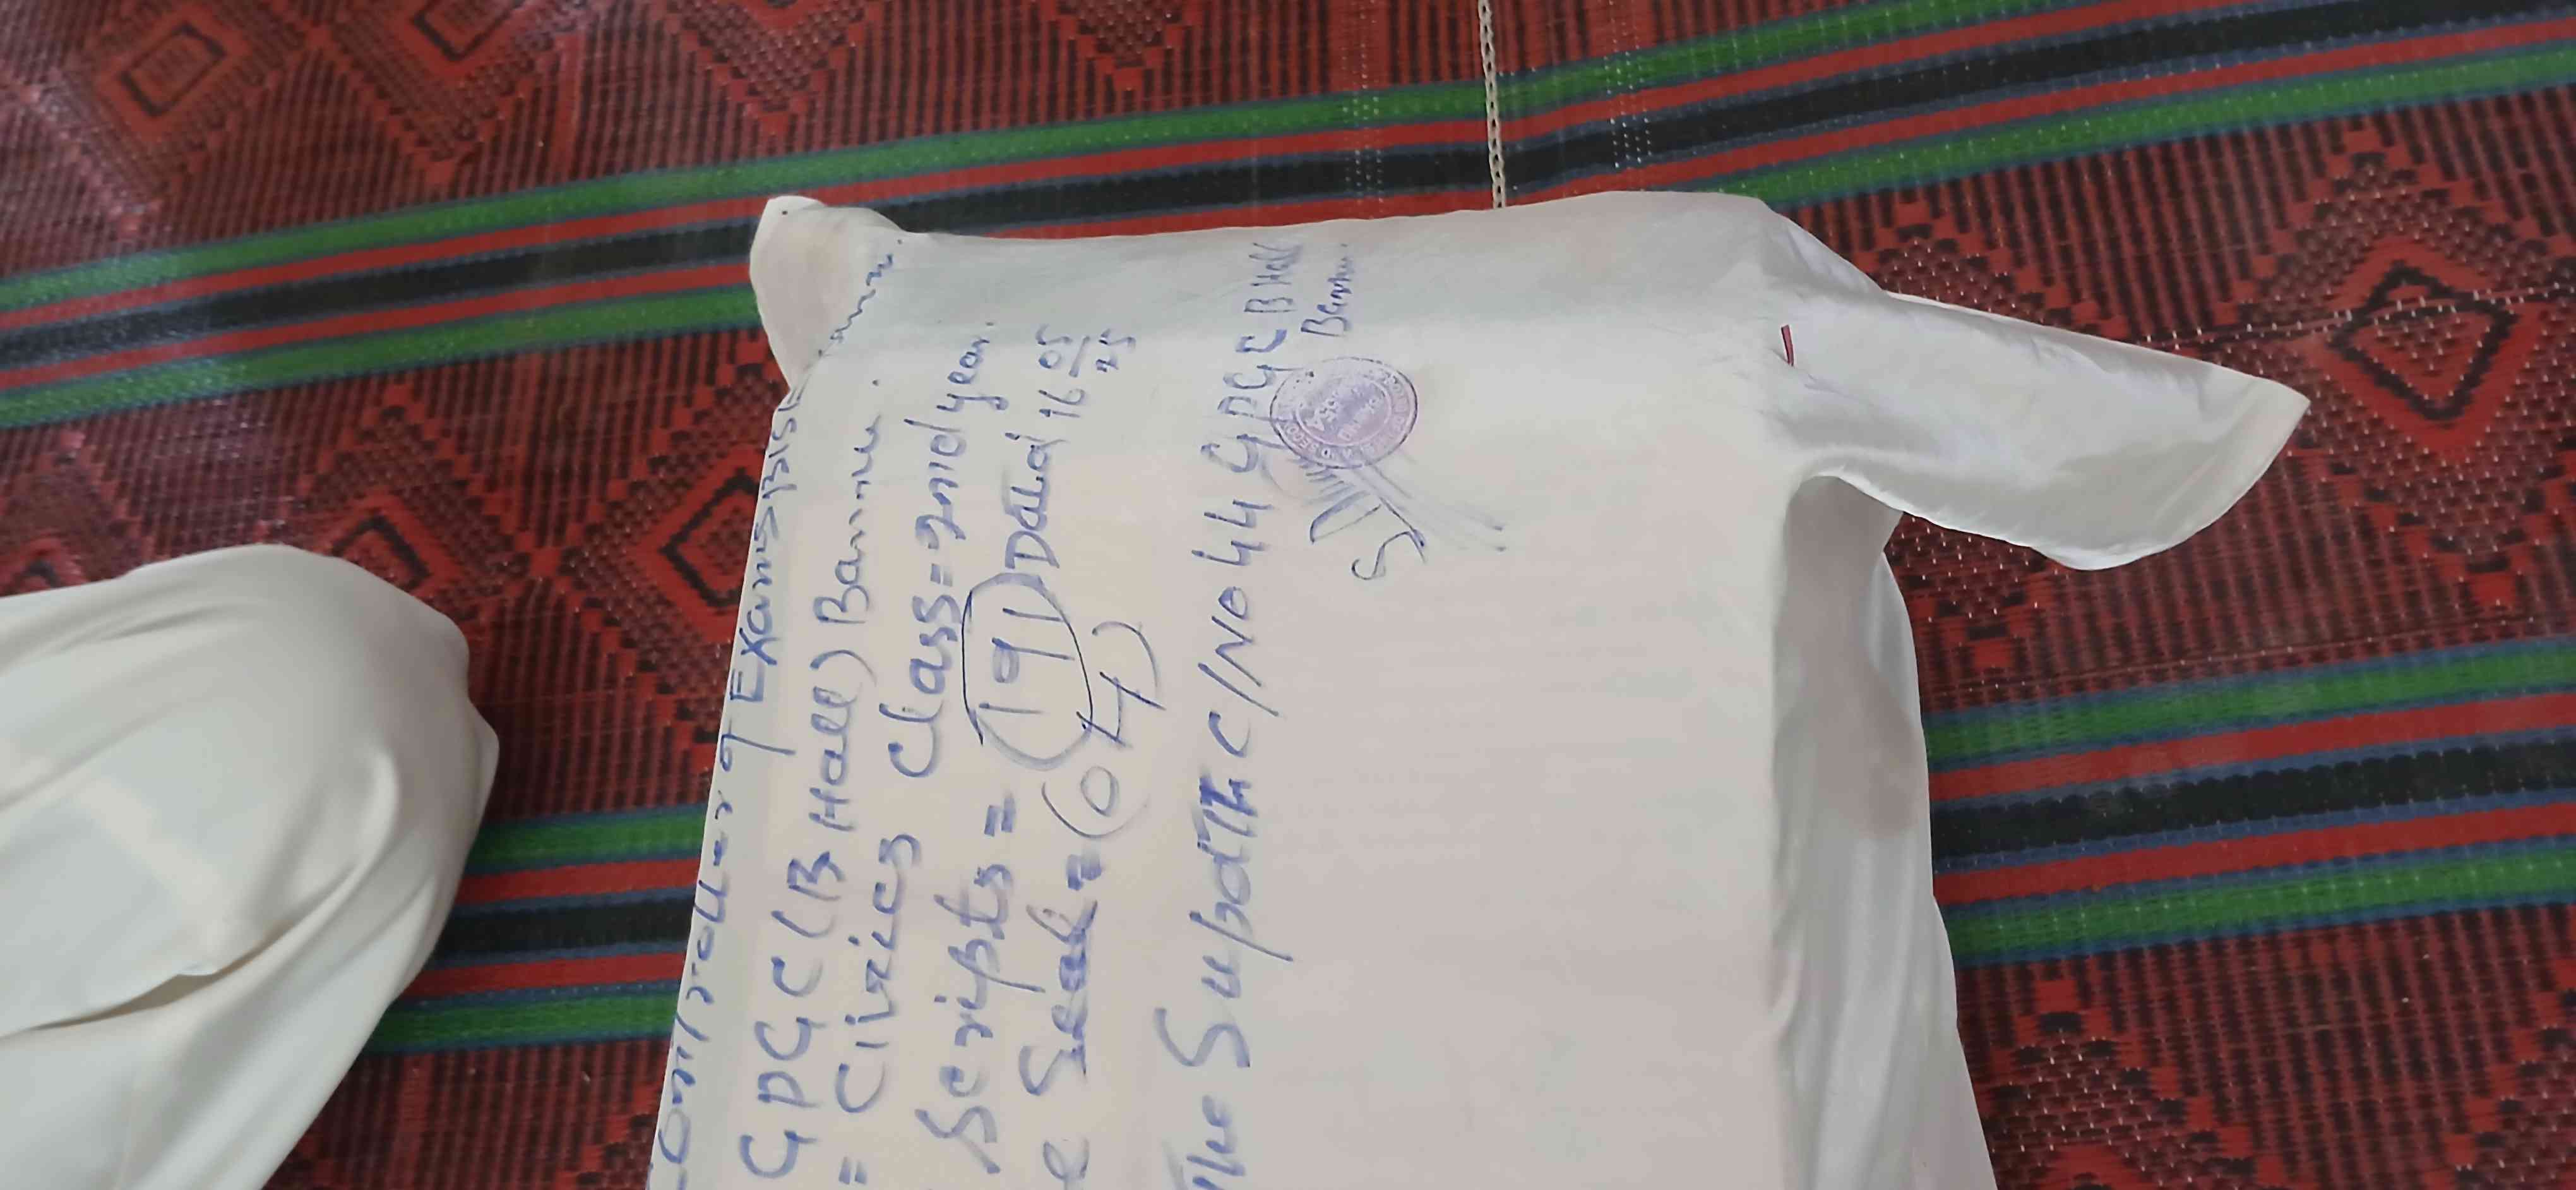 Controller of Exams BISE Bannu.
GPGC (B Hall) Bannu.
= Civics Class = 2nd year.
Scripts = (191) Dated 16 05/25
Seal = (04)
The Supdtt: C/No 44 GPGC B Hall
Bannu.